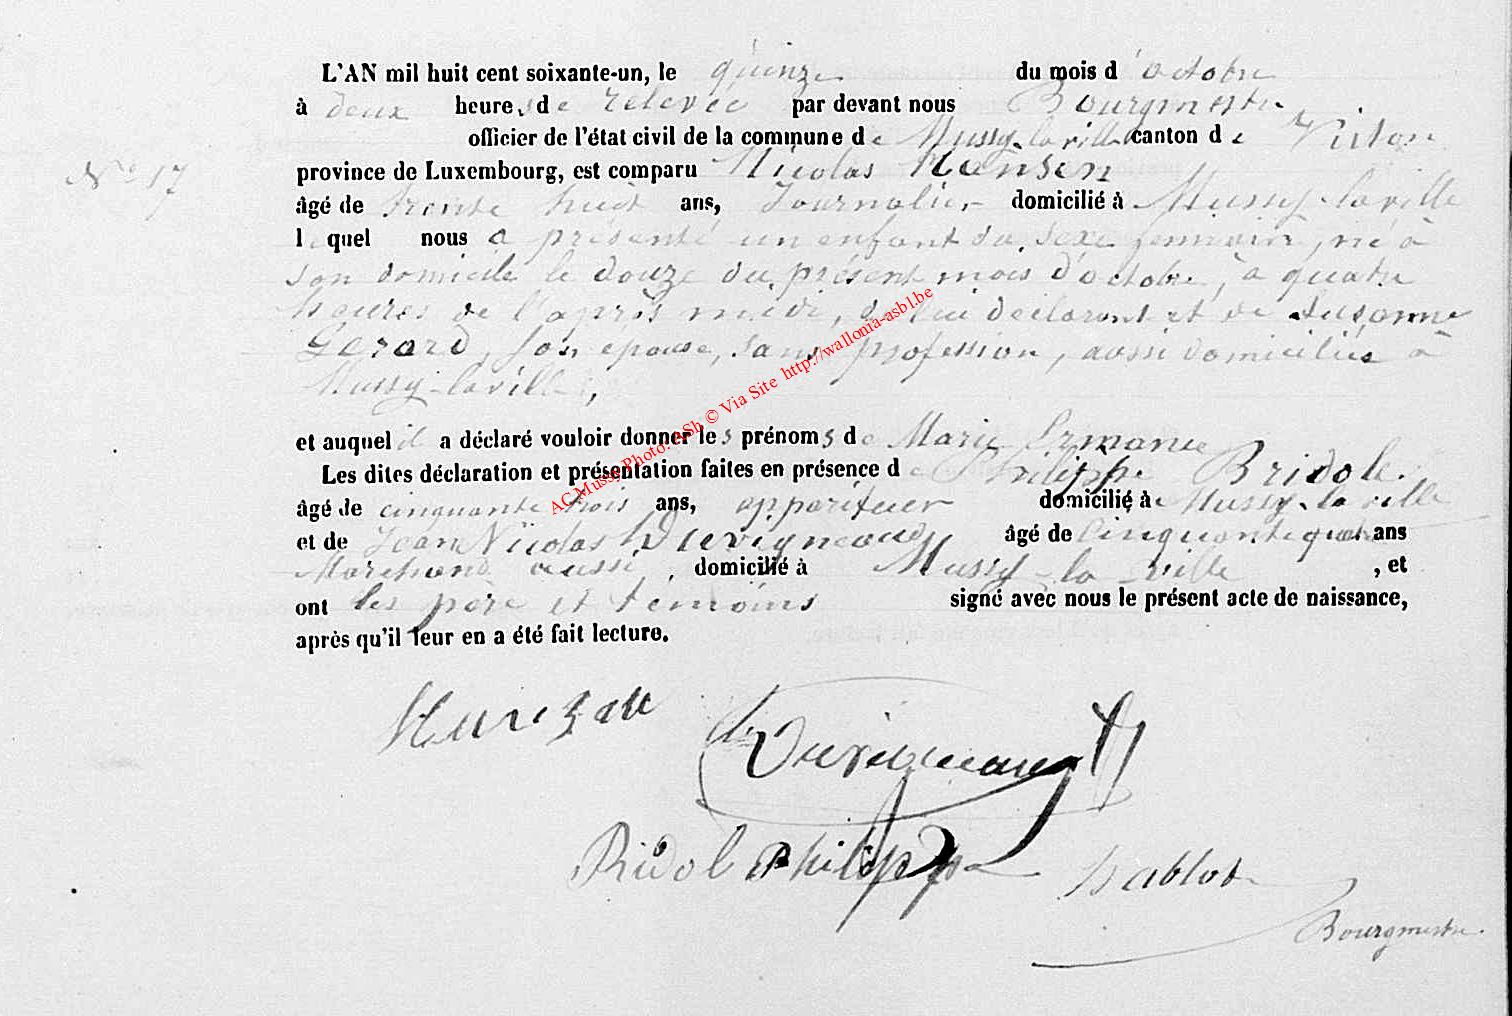 L'AN mil huit cent soixante-un, le quinze du mois d'octobre
à deux heures de relevée par devant nous Bourgmestre
officier de l'état civil de la commune de Mussy-la-ville canton de Virton
N° 17
province de Luxembourg, est comparu Nicolas Hansen
âgé de trente huit ans, Journalier domicilié à Mussy-la ville
lequel nous a présenté un enfant du sexe féminin, né à
son domicile le douze du présent mois d'octobre, à quatre
heures de l'après midi, de lui déclarant et de Susanne
Gerard, son epouse, sans profession, aussi domiciliée à
Mussy-la ville,
et auquel il a déclaré vouloir donner les prénoms de Marie Ermance
Les dites déclaration et présentation faites en présence de Philippe Bridole
âgé de cinquante trois ans, appariteur domicilié à Mussy-la ville
et de Jean Nicolas Duvigneaud âgé de cinquante quatre ans
Marchand aussi domicilié à Mussy-la ville, et
ont les père et témoins signé avec nous le présent acte de naissance,
après qu'il leur en a été fait lecture.
Duvigneaud
Ridole Philippe
Bourgmestre.
AC Mussy Photo: ASh © Via Site http://wallonia-asbl.be